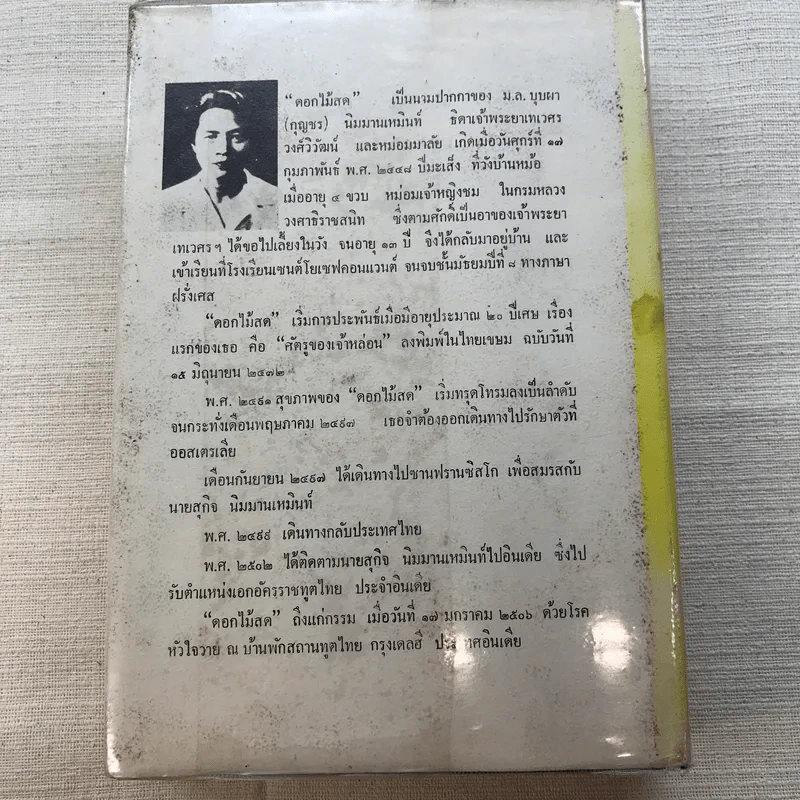 “ดอกไม้สด” เป็นนามปากกาของ ม.ล. บุบผา
(กุญชร) นิมมานเหมินท์ ธิดาเจ้าพระยาเทเวศร
วงศ์วิวัฒน์ และหม่อมมาลัย เกิดเมื่อวันศุกร์ที่ ๑๗
กุมภาพันธ์ พ.ศ. ๒๔๔๘ ปีมะเส็ง ที่วังบ้านหม้อ
เมื่ออายุ ๔ ขวบ หม่อมเจ้าหญิงชม ในกรมหลวง
วงศาธิราชสนิท ซึ่งตามศักดิ์เป็นอาของเจ้าพระยา
เทเวศรฯ ได้ขอไปเลี้ยงในวัง จนอายุ ๑๓ ปี จึงได้กลับมาอยู่บ้าน และ
เข้าเรียนที่โรงเรียนเซนต์โยเซฟคอนแวนต์ จนจบชั้นมัธยมปีที่ ๘ ทางภาษา
ฝรั่งเศส
“ดอกไม้สด” เริ่มการประพันธ์เมื่อมีอายุประมาณ ๒๐ ปีเศษ เรื่อง
แรกของเธอ คือ “ศัตรูของเจ้าหล่อน” ลงพิมพ์ในไทยเขษม ฉบับวันที่
๑๕ มิถุนายน ๒๔๗๒
พ.ศ. ๒๔๙๑ สุขภาพของ “ดอกไม้สด” เริ่มทรุดโทรมลงเป็นลำดับ
จนกระทั่งเดือนพฤษภาคม ๒๔๙๗ เธอจำต้องออกเดินทางไปรักษาตัวที่
ออสเตรเลีย
เดือนกันยายน ๒๔๙๗ ได้เดินทางไปซานฟรานซิสโก เพื่อสมรสกับ
นายสุกิจ นิมมานเหมินท์
พ.ศ. ๒๔๙๙ เดินทางกลับประเทศไทย
พ.ศ. ๒๕๐๒ ได้ติดตามนายสุกิจ นิมมานเหมินท์ไปอินเดีย ซึ่งไป
รับตำแหน่งเอกอัครราชทูตไทย ประจำอินเดีย
“ดอกไม้สด” ถึงแก่กรรม เมื่อวันที่ ๑๗ มกราคม ๒๕๐๖ ด้วยโรค
หัวใจวาย ณ บ้านพักสถานทูตไทย กรุงเดลฮี ประเทศอินเดีย